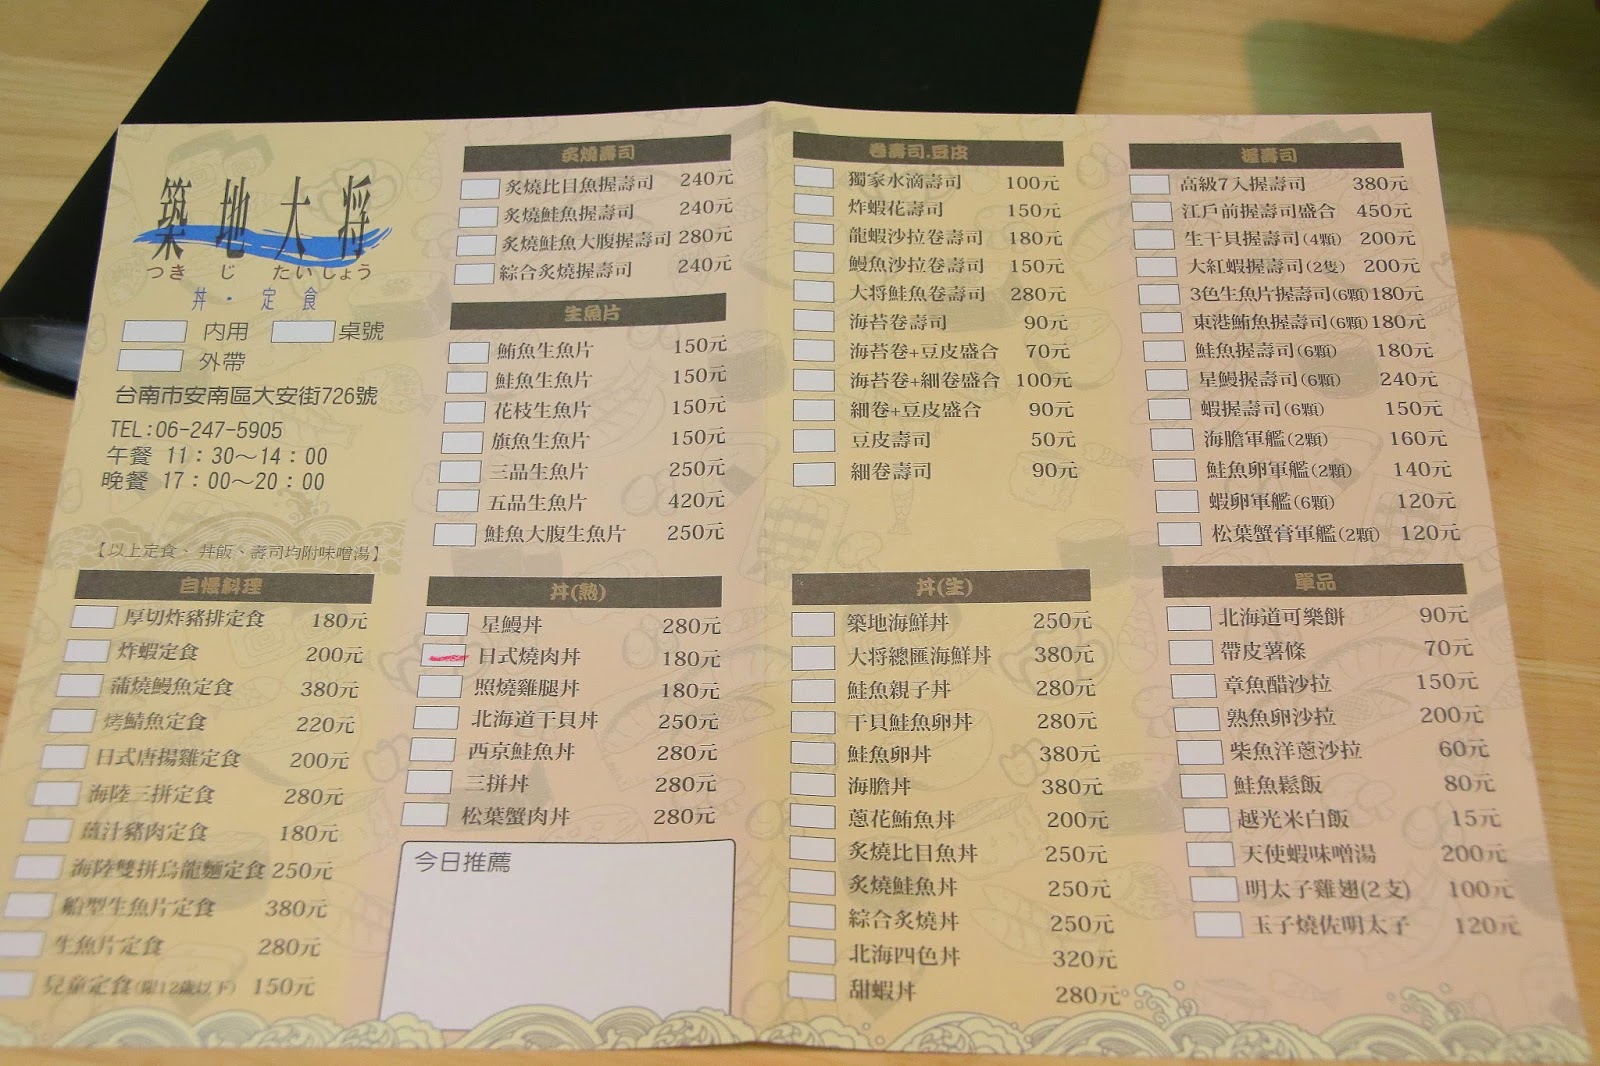 築地大将
つきじ たいしょう
丼・定食
内用 桌號
外帶
台南市安南區大安街726號
TEL:06-247-5905
午餐 11：30～14：00
晚餐 17：00～20：00
【以上定食、丼飯、壽司均附味噌湯】
炙燒壽司
炙燒比目魚握壽司 240元
炙燒鮭魚握壽司 240元
炙燒鮭魚大腹握壽司 280元
綜合炙燒握壽司 240元
生魚片
鮪魚生魚片 150元
鮭魚生魚片 150元
花枝生魚片 150元
旗魚生魚片 150元
三品生魚片 250元
五品生魚片 420元
鮭魚大腹生魚片 250元
卷壽司.豆皮
獨家水滴壽司 100元
炸蝦花壽司 150元
龍蝦沙拉卷壽司 180元
鰻魚沙拉卷壽司 150元
大将鮭魚卷壽司 280元
海苔卷壽司 90元
海苔卷+豆皮盛合 70元
海苔卷+細卷盛合 100元
細卷+豆皮盛合 90元
豆皮壽司 50元
細卷壽司 90元
握壽司
高級7入握壽司 380元
江戶前握壽司盛合 450元
生干貝握壽司(4顆) 200元
大紅蝦握壽司(2隻) 200元
3色生魚片握壽司(6顆) 180元
東港鮪魚握壽司(6顆) 180元
鮭魚握壽司(6顆) 180元
星鰻握壽司(6顆) 240元
蝦握壽司(6顆) 150元
海膽軍艦(2顆) 160元
鮭魚卵軍艦(2顆) 140元
蝦卵軍艦(6顆) 120元
松葉蟹膏軍艦(2顆) 120元
自慢料理
厚切炸豬排定食 180元
炸蝦定食 200元
蒲燒鰻魚定食 380元
烤鯖魚定食 220元
日式唐揚雞定食 200元
海陸三拼定食 280元
薑汁豬肉定食 180元
海陸雙拼烏龍麵定食 250元
船型生魚片定食 380元
生魚片定食 280元
兒童定食(限12歲以下) 150元
丼(熟)
星鰻丼 280元
日式燒肉丼 180元
照燒雞腿丼 180元
北海道干貝丼 250元
西京鮭魚丼 280元
三拼丼 280元
松葉蟹肉丼 280元
今日推薦
丼(生)
築地海鮮丼 250元
大将總匯海鮮丼 380元
鮭魚親子丼 280元
干貝鮭魚卵丼 280元
鮭魚卵丼 380元
海膽丼 380元
蔥花鮪魚丼 200元
炙燒比目魚丼 250元
炙燒鮭魚丼 250元
綜合炙燒丼 250元
北海四色丼 320元
甜蝦丼 280元
單品
北海道可樂餅 90元
帶皮薯條 70元
章魚醋沙拉 150元
熟魚卵沙拉 200元
柴魚洋蔥沙拉 60元
鮭魚鬆飯 80元
越光米白飯 15元
天使蝦味噌湯 200元
明太子雞翅(2支) 100元
玉子燒佐明太子 120元